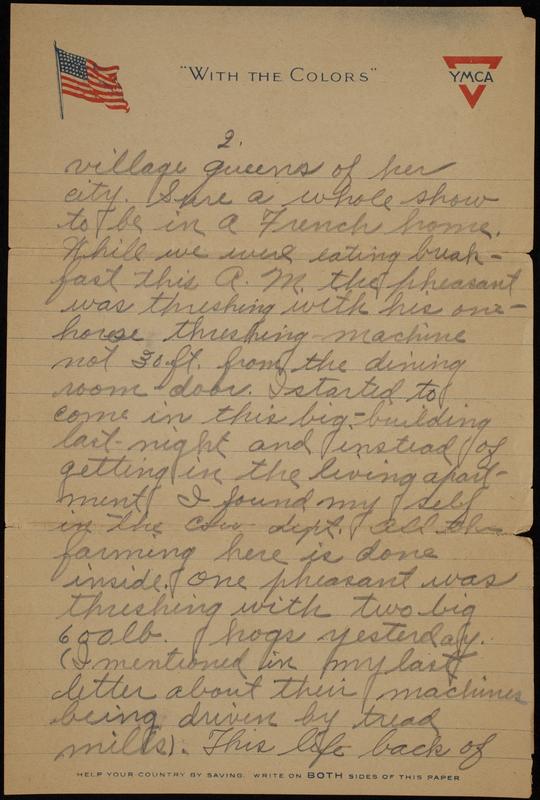 "WITH THE COLORS"
YMCA
2.
village queens of her
city. Sure a whole show
to be in a French home.
While we were eating break-
fast this A. M. the pheasant
was threshing with his one-
horse threshing-machine
not 30 ft. from the dining
room door. I started to
come in this big-building
last-night and instead of
getting in the living apart-
ment I found my self
in the cow dept. All the
farming here is done
inside. One pheasant was
threshing with two big
600 lb. hogs yesterday.
(I mentioned in my last
letter about their machines
being driven by tread
mills). This life back of
HELP YOUR COUNTRY BY SAVING. WRITE ON BOTH SIDES OF THIS PAPER